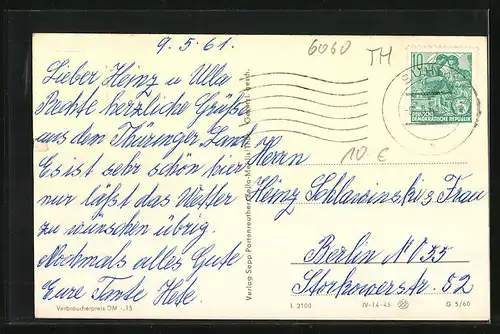 9.5.61.
6060
TH
Lieber Heinz u Ulla
Rechte herzliche Grüße
aus den Thüringer Land.
Es ist sehr schön hier
nur läßt das Wetter
zu wünschen übrig.
Nochmals alles Gute
Eure Tante
Verbraucherpreis DM -,15
Verlag Sepp
10
DEUTSCHE
DEMOKRATISCHE REPUBLIK
10 €
Herrn
Heinz u. Frau
Berlin NO 55
Storkowerstr. 52
I 2100
IV-14-45
G 5/60